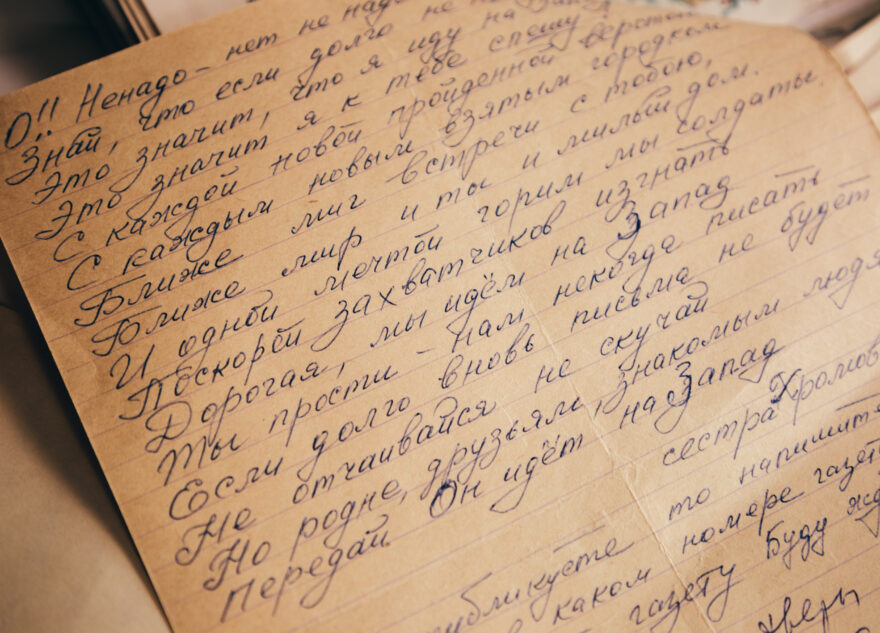 О!! Ненадо - нет не надо
Знай, что если долго не
Это значит, что я иду на Запад
Это значит я к тебе спешу!
С каждой новой пройденной верстой
С каждым новым взятым городком
Ближе миг встречи с тобою,
Ближе мир и ты и милый дом.
И одной мечтой горим мы солдаты
Поскорей захватчиков изгнать
Дорогая, мы идём на Запад
Ты прости - нам некогда писать
Если долго вновь письма не будет
Не отчаивайся не скучай
Но родне, друзьям, знакомым людя
Передай. Он идёт на Запад
сестра Хромов
публикуете то напишите
в каком номере газет
газету Буду жд